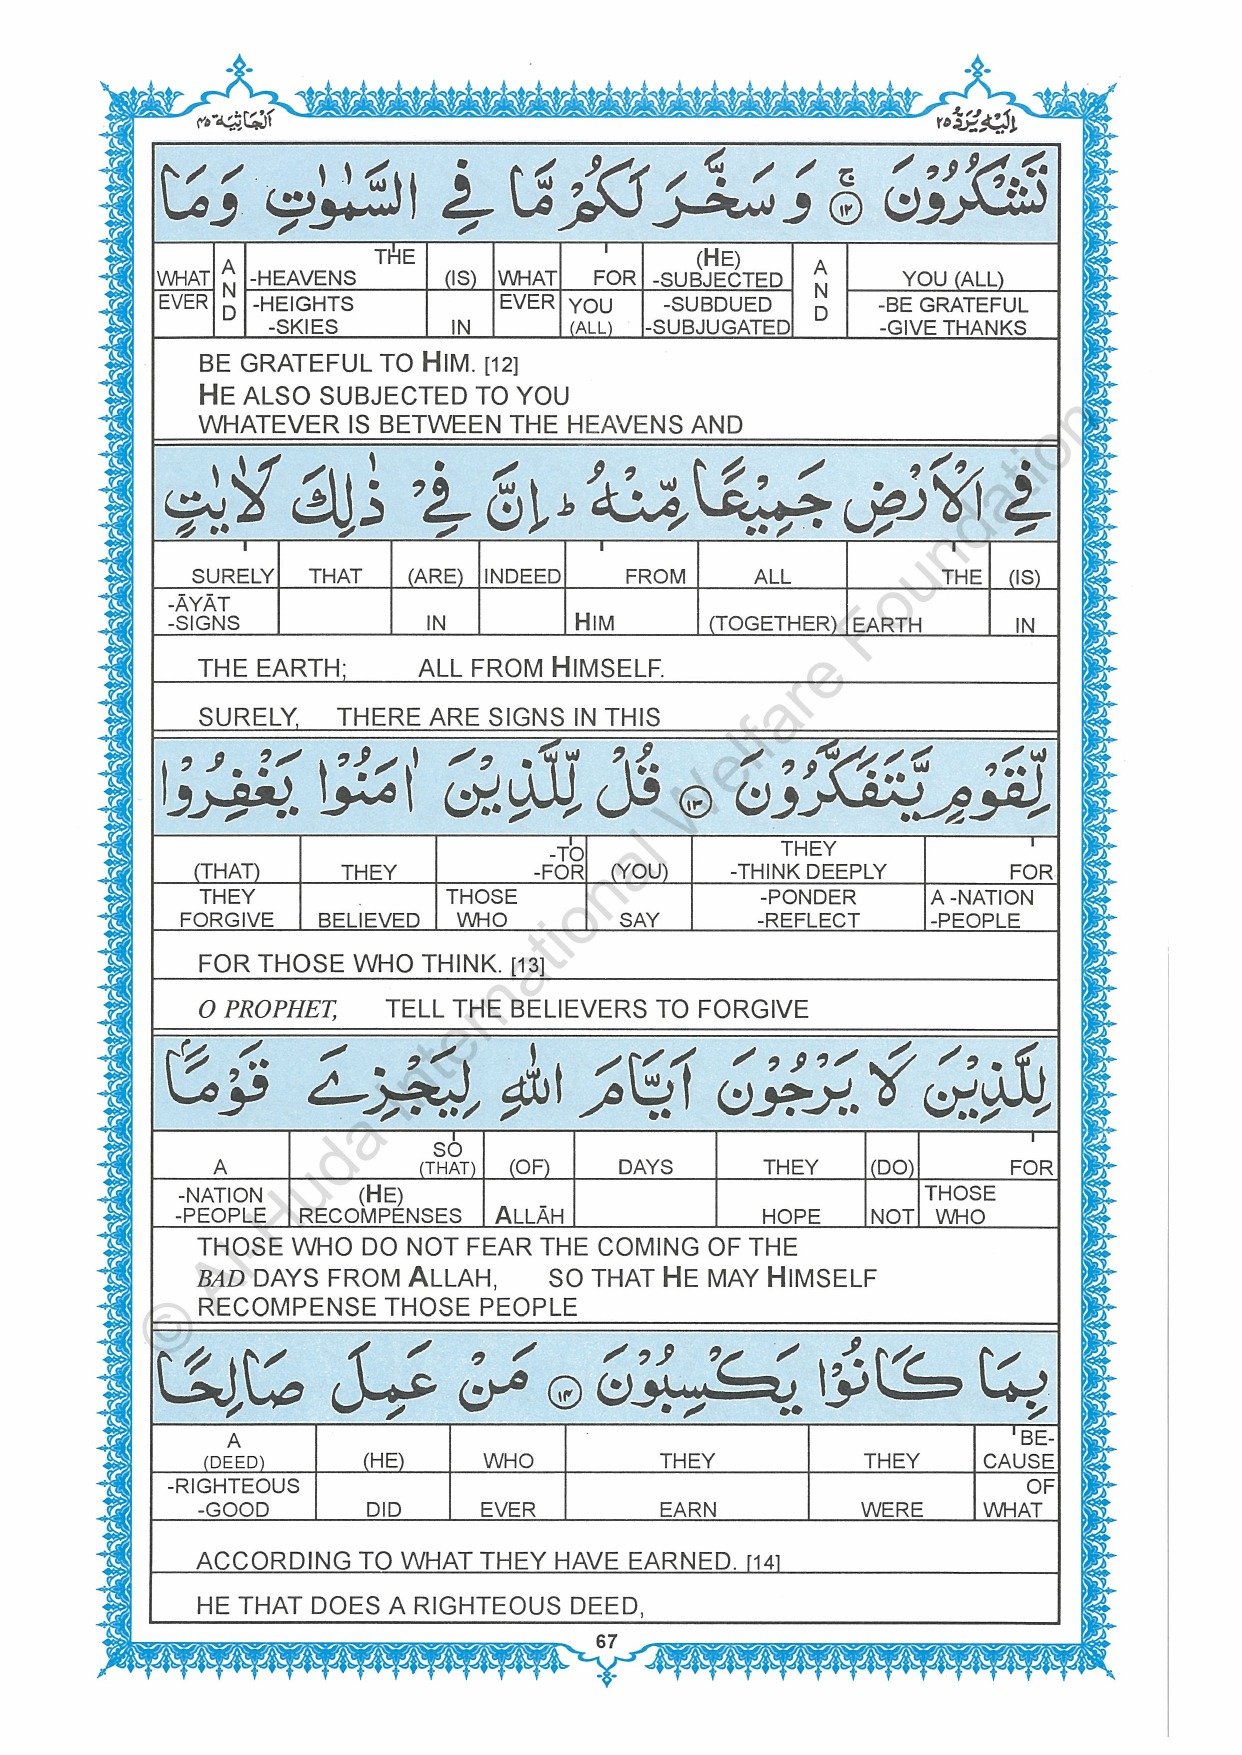 اَلْجَاثِيَة ٤٥ اِلَيْهِ يُرَدُّ ٢٥
تَشْكُرُوْنَ ۚ ﴿۱۲﴾ وَ سَخَّرَ لَكُمْ مَّا فِي السَّمٰوٰتِ وَ مَا
WHAT EVER | AND | THE -HEAVENS -HEIGHTS -SKIES | (IS) IN | WHAT EVER | FOR YOU (ALL) | (HE) -SUBJECTED -SUBDUED -SUBJUGATED | AND | YOU (ALL) -BE GRATEFUL -GIVE THANKS
BE GRATEFUL TO HIM. [12]
HE ALSO SUBJECTED TO YOU
WHATEVER IS BETWEEN THE HEAVENS AND
فِي الْاَرْضِ جَمِيْعًا مِّنْهُ ؕ اِنَّ فِيْ ذٰلِكَ لَاٰيٰتٍ
SURELY -ĀYĀT -SIGNS | THAT | (ARE) IN | INDEED | FROM HIM | ALL (TOGETHER) | THE EARTH | (IS) IN
THE EARTH; ALL FROM HIMSELF.
SURELY, THERE ARE SIGNS IN THIS
لِّقَوْمٍ يَّتَفَكَّرُوْنَ ﴿۱۳﴾ قُلْ لِّلَّذِيْنَ اٰمَنُوْا يَغْفِرُوْا
(THAT) THEY FORGIVE | THEY BELIEVED | -TO -FOR THOSE WHO | (YOU) SAY | THEY -THINK DEEPLY -PONDER -REFLECT | FOR A -NATION -PEOPLE
FOR THOSE WHO THINK. [13]
O PROPHET, TELL THE BELIEVERS TO FORGIVE
لِلَّذِيْنَ لَا يَرْجُوْنَ اَيَّامَ اللّٰهِ لِيَجْزِيَ قَوْمًۢا
A -NATION -PEOPLE | SO (THAT) (HE) RECOMPENSES | (OF) ALLĀH | DAYS | THEY HOPE | (DO) NOT | FOR THOSE WHO
THOSE WHO DO NOT FEAR THE COMING OF THE
BAD DAYS FROM ALLAH, SO THAT HE MAY HIMSELF
RECOMPENSE THOSE PEOPLE
بِمَا كَانُوْا يَكْسِبُوْنَ ﴿۱۴﴾ مَنْ عَمِلَ صَالِحًا
A (DEED) -RIGHTEOUS -GOOD | (HE) DID | WHO EVER | THEY EARN | THEY WERE | BE-CAUSE OF WHAT
ACCORDING TO WHAT THEY HAVE EARNED. [14]
HE THAT DOES A RIGHTEOUS DEED,
67
© Al-Huda International Welfare Foundation